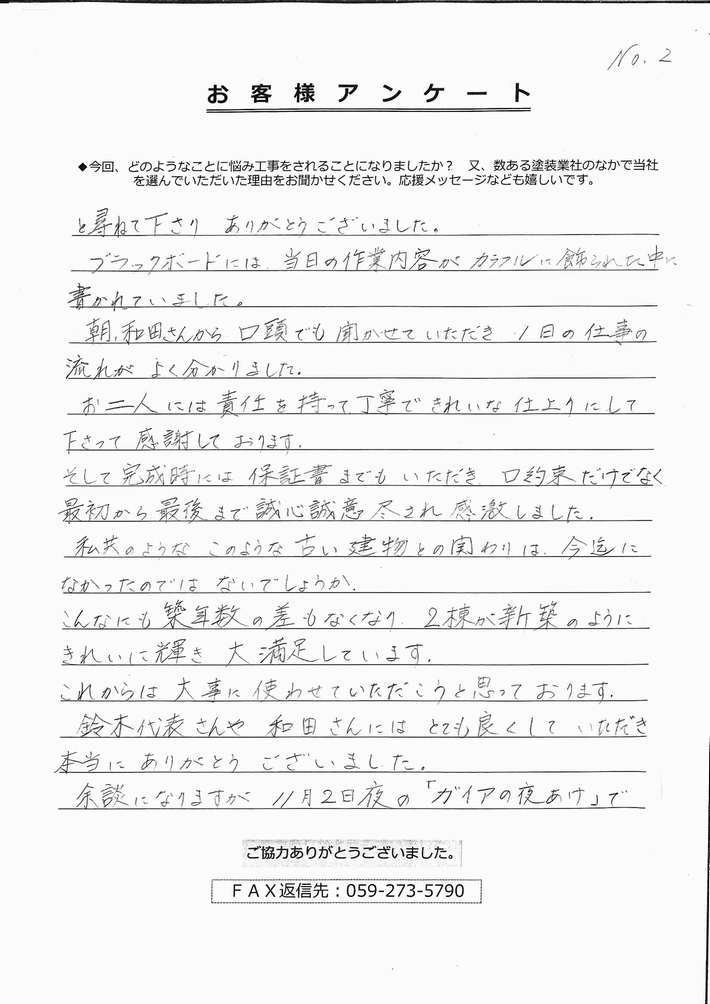 No. 2
お客様アンケート
◆今回、どのようなことに悩み工事をされることになりましたか？　又、数ある塗装業社のなかで当社
を選んでいただいた理由をお聞かせください。応援メッセージなども嬉しいです。
と尋ねて下さり ありがとうございました。
ブラックボードには、当日の作業内容が カラフルに飾られた中に
書かれていました。
朝、和田さんから 口頭でも 聞かせていただき 1日の仕事の
流れが よく分かりました。
お二人には責任を持って丁寧できれいな仕上りにして
下さって 感謝しております。
そして完成時には 保証書までも いただき 口約束だけでなく
最初から最後まで誠心誠意尽され 感激しました。
私共のような このような古い建物との関わりは、今迄に
なかったのでは ないでしょうか。
こんなにも築年数の差もなくなり、2棟が新築のように
きれいに輝き 大満足しています。
これからは 大事に使わせていただこうと思っております。
鈴木代表さんや 和田さんには とても良くして いただき
本当に ありがとう ございました。
余談になりますが 11月2日夜の「ガイアの夜あけ」で
ご協力ありがとうございました。
ＦＡＸ返信先：059-273-5790